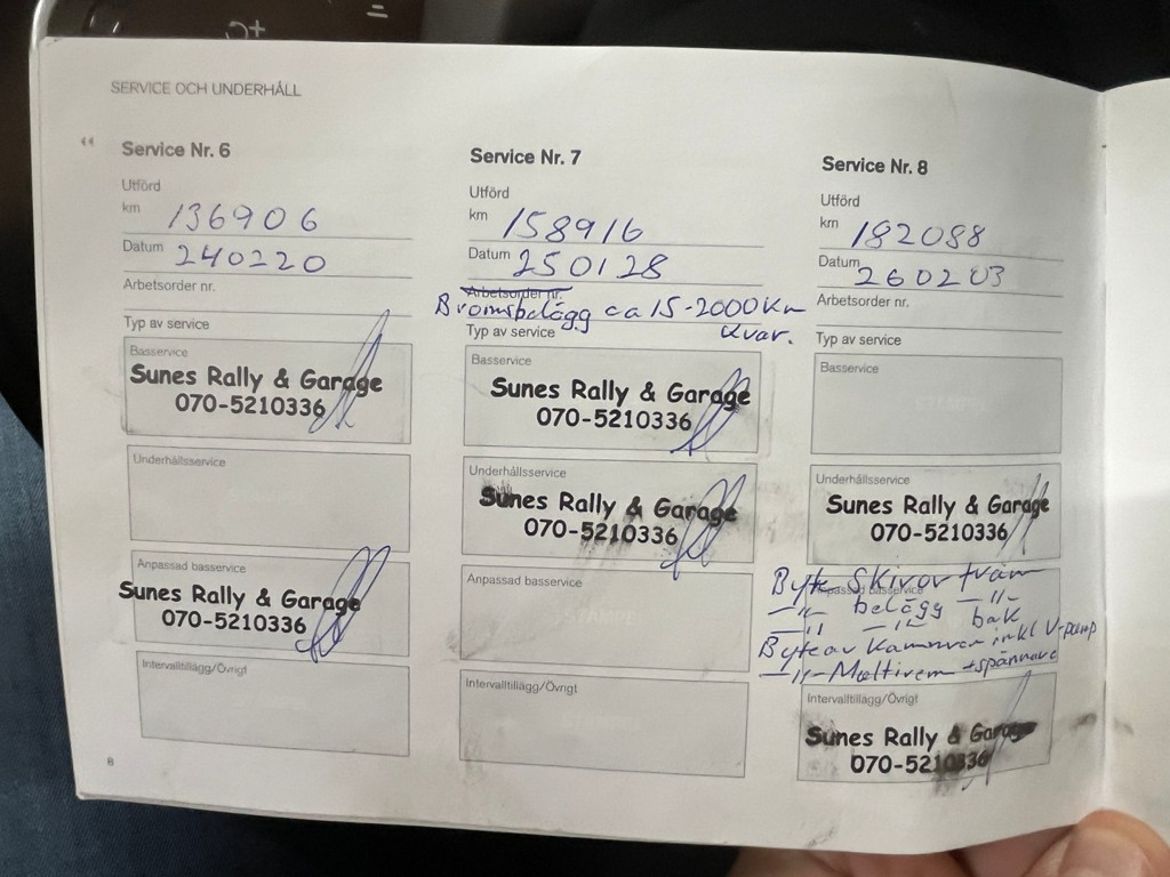 SERVICE OCH UNDERHÅLL
Service Nr. 6
Utförd
km 136906
Datum 240220
Arbetsorder nr.
Typ av service
Basservice
Sunes Rally & Garage
070-5210336
Underhållsservice
Anpassad basservice
Sunes Rally & Garage
070-5210336
Intervalltillägg/Övrigt
8
Service Nr. 7
Utförd
km 158916
Datum 250128
Arbetsorder nr.
Bromsbelägg ca 15-2000 Km
kvar.
Typ av service
Basservice
Sunes Rally & Garage
070-5210336
Underhållsservice
Sunes Rally & Garage
070-5210336
Anpassad basservice
Intervalltillägg/Övrigt
Service Nr. 8
Utförd
km 182088
Datum 260203
Arbetsorder nr.
Typ av service
Basservice
Underhållsservice
Sunes Rally & Garage
070-5210336
Anpassad basservice
Byte Skivor fram
-"- belägg -"-
-"- -"- bak
Byte av Kamrem inkl V-pump
-"- Multirem + spännare
Intervalltillägg/Övrigt
Sunes Rally & Garage
070-5210336